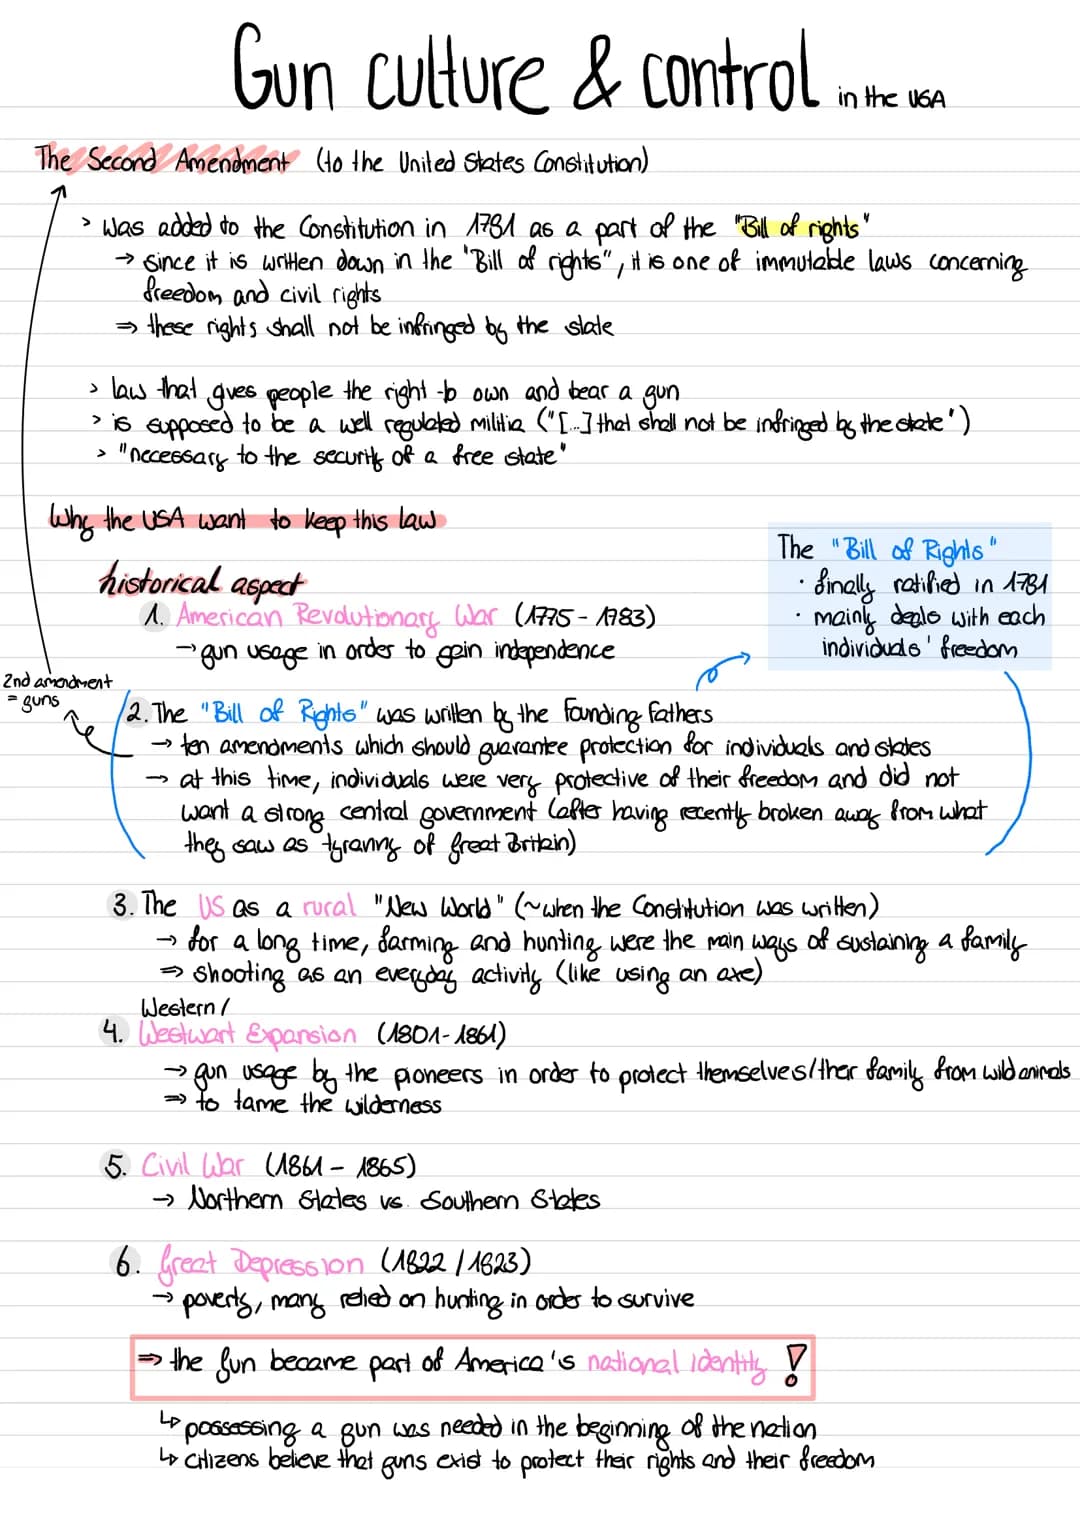 Gun culture & control in the USA
The Second Amendment (to the United States Constitution)
> was added to the Constitution in 1791 as a part of the "Bill of rights"
→ since it is written down in the 'Bill of rights", it is one of immutable laws concerning
freedom and civil rights
⇒ these rights shall not be infringed by the state
> law that gives people the right to own and bear a gun
> is supposed to be a well regulated militia ("[...] that shall not be infringed by the state")
> "necessary to the security of a free state"
Why the USA want to keep this law
The "Bill of Rights"
· finally ratified in 1791
· mainly deals with each
individuals' freedom
historical aspect
1. American Revolutionary War (1775 - 1783)
→ gun usage in order to gain independence
2nd amendment
= guns
2. The "Bill of Rights" was written by the Founding Fathers
→ ten amendments which should guarantee protection for individuals and states
→ at this time, individuals were very protective of their freedom and did not
want a strong central government (after having recently broken away from what
they saw as tyranny of Great Britain)
3. The US as a rural "New World" (~when the Constitution was written)
→ for a long time, farming and hunting were the main ways of sustaining a family
⇒ shooting as an everyday activity (like using an axe)
Western /
4. Westwart Expansion (1801-1861)
→ gun usage by the pioneers in order to protect themselves/ther family from wild animals
⇒ to tame the wilderness
5. Civil War (1861 - 1865)
→ Northern States vs. Southern States
6. Great Depression (1922 / 1923)
→ poverty, many relied on hunting in order to survive
⇒ the gun became part of America's national identity !
↳ possessing a gun was needed in the beginning of the nation
↳ citizens believe that guns exist to protect their rights and their freedom